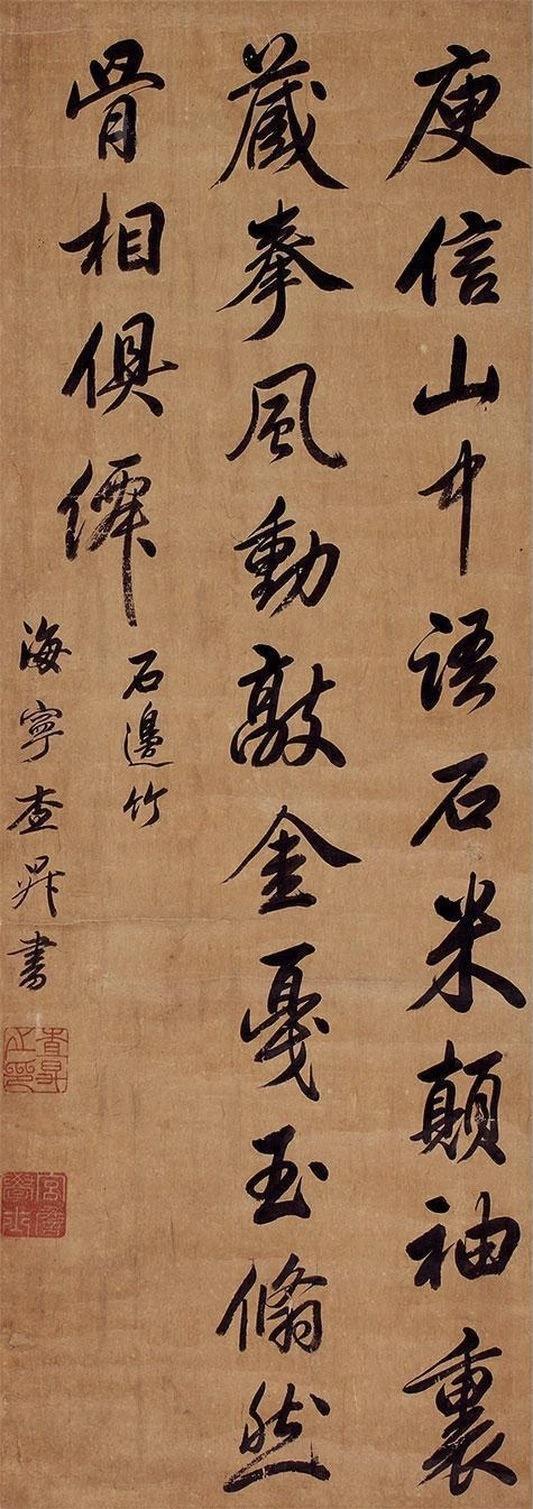 庾信山中語石米顛袖裏
藏拳風動敲金戛玉翛然
骨相俱僊
石邊竹
海寧查昇書
查昇之印
宮詹學士